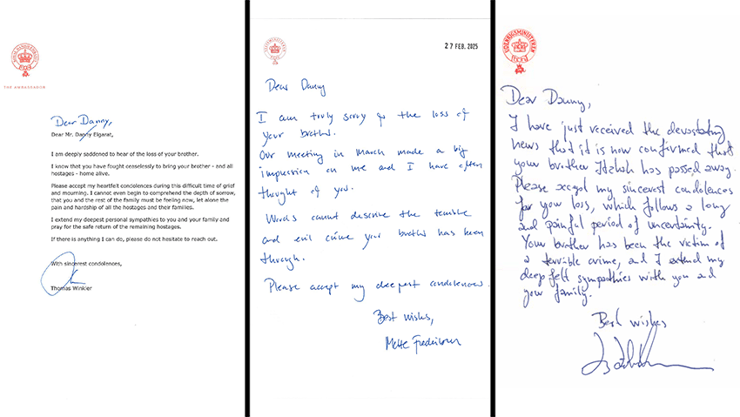 THE AMBASSADOR
Dear Danny,
Dear Mr. Danny Elgarat,
I am deeply saddened to hear of the loss of your brother.
I know that you have fought ceaselessly to bring your brother - and all
hostages - home alive.
Please accept my heartfelt condolences during this difficult time of grief
and mourning. I cannot even begin to comprehend the depth of sorrow,
that you and the rest of the family must be feeling now, let alone the
pain and hardship of all the hostages and their families.
I extend my deepest personal sympathies to you and your family and
pray for the safe return of the remaining hostages.
If there is anything I can do, please do not hesitate to reach out.
With sincerest condolences,
Thomas Winkler
27 FEB. 2025
Dear Danny
I am truly sorry for the loss of
your brother.
Our meeting in March made a big
impression on me and I have often
thought of you.
Words cannot describe the terrible
and evil crime your brother has been
through.
Please accept my deepest condolences.
Best wishes,
Mette Frederiksen
UDENRIGSMINISTEREN
Dear Danny,
I have just received the devastating
news that it is now confirmed that
your brother Itzhak has passed away.
Please accept my sincerest condolences
for your loss, which follows a long
and painful period of uncertainty.
Your brother has been the victim of
a terrible crime, and I extend my
deep felt sympathies with you and
your family.
Best wishes